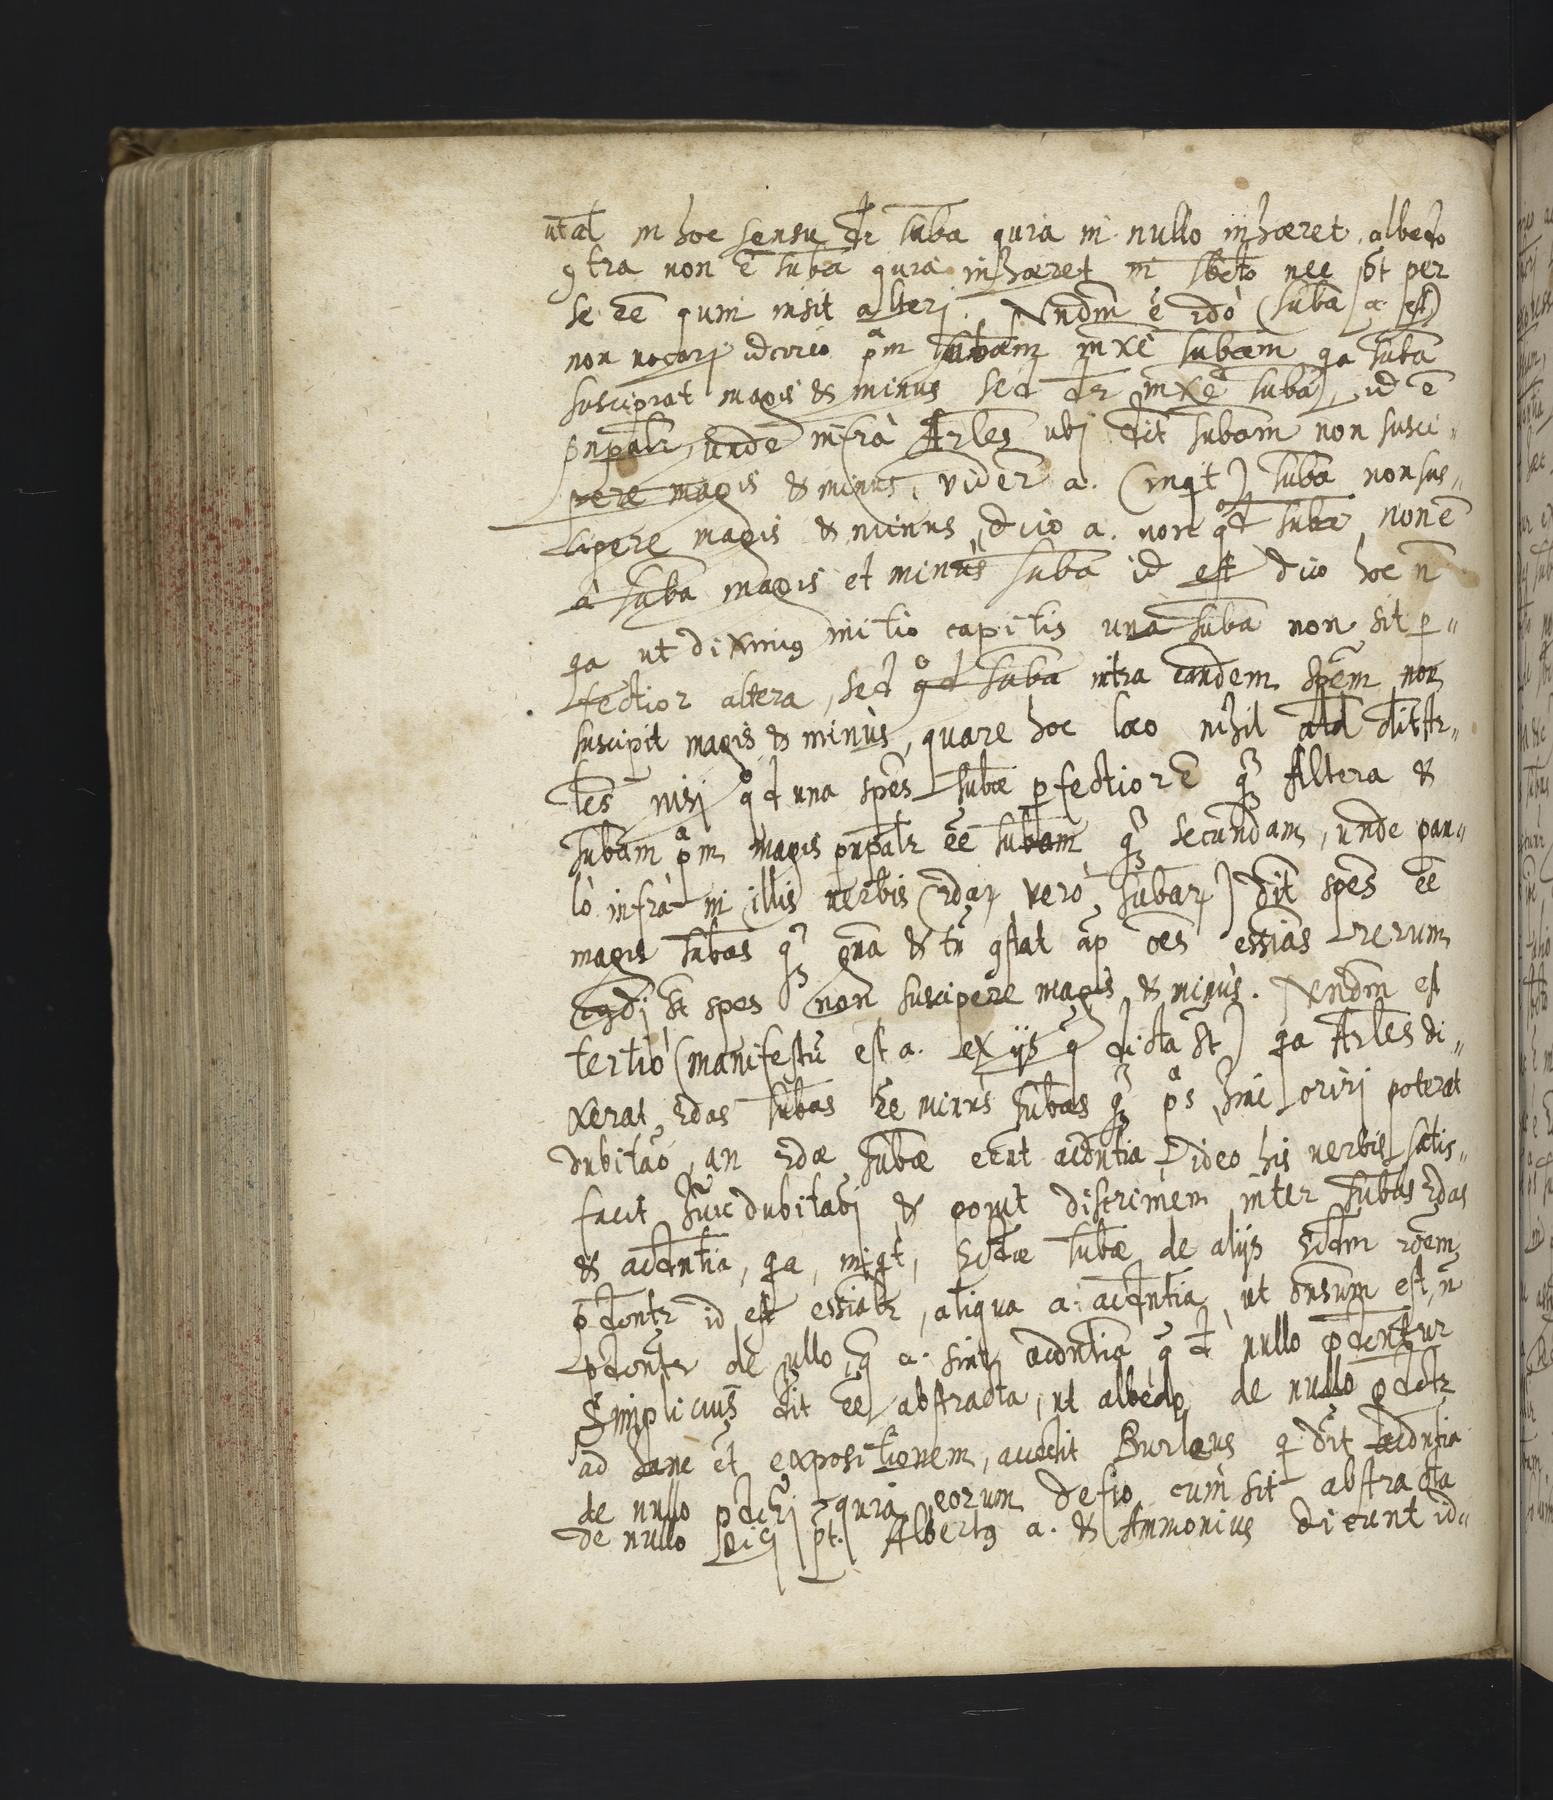 ut al in hoc sensu dr suba quia in nullo inhæret albedo
9tra non ē suba quia inhæret in sbcto nec pt per
se eē quin insit alteri. Nndm ē 2dò (suba a. est)
non vocari idcirco pam subam mxē subam qa suba
suscipiat magis & minus sed dr mxē suba, id ē
pnpalr, unde infrà Arles ubi dit subam non susci"
pere magis & minus, vider a. (inqit) suba non sus"
cipere magis & minus, dico a. non qd suba non ē
à suba magis et minùs suba id est dico hoc n̄
qa ut dixim9 initio capitis una suba non sit p"
fectior altera, sed qd suba intra eandem spēm non
suscipit magis & minùs, quare hoc loco nihil ald dit Ar"
les nisi qd una spēs subæ pfectior ē q3 Altera &
subam pam magis pnpalr eē subam q3 secundam, unde pau"
lò infrà in illis verbis (2dar vero subar) dit spēs eē
magis subas q3 gna & tn 9stat ap oēs essias rerum
st spes non suscipere magis & minùs. Nndm est
tertiò (manifestū est a. ex ijs q dicta st) qa Arles di"
xerat 2das subas eē minùs subas q3 pas, hinc oriri poterat
dubitaō, an 2dæ subæ eent acdntia, ideo his verbis satis"
facit huic dubitaōi & ponit discrimen inter subas 2das
& acdntia, qa, inqt, 2dæ subæ de alijs 2dm
pdcantr id est essialr, aliqua a. acdntia, ut onsum est, n̄
pdcantr de ullo, q a. sint acdntia q d nullo pdcantur
Simplicius dit eē abstracta, ut albedo de nullo pdctr
ad hanc et expositionem, accedit Burleus q dit acdntia
de nullo pdcri quia eorum defio cum sit abstracta
de nullo dici pt. Albert9 a. & Ammonius dicunt id"